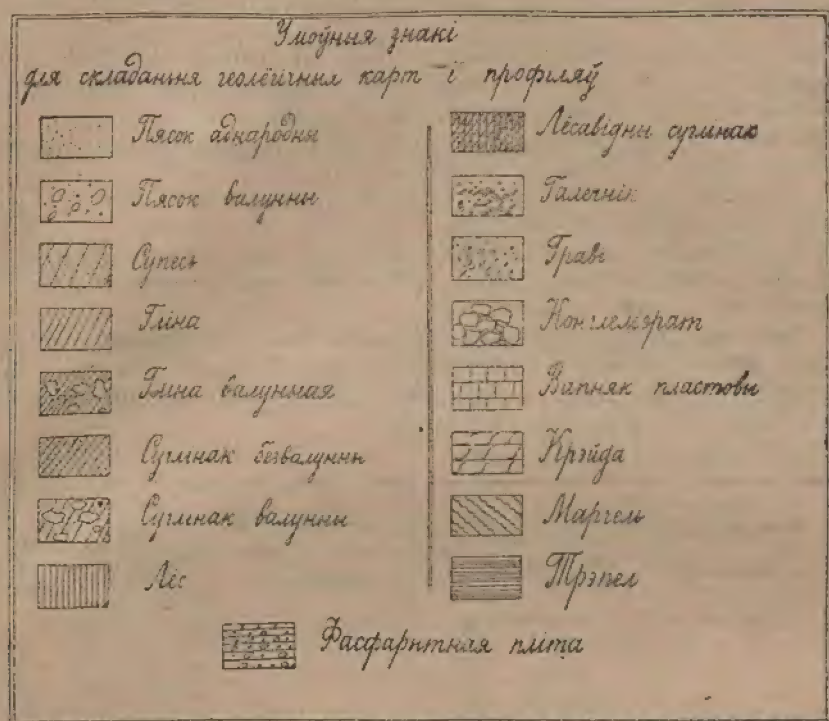 Умоўныя знакі
для складаньня геолёгічных карт і профіляў
Пясок аднародны
Пясок валунны
Супесь
Гліна
Гліна валунная
Суглінак безвалунны
Суглінак валунны
Лёс
Лёсавідны суглінак
Галечнік
Граві
Конглемэрат
Вапняк пластовы
Крэйда
Маргель
Трэпел
Фасфарытная пліта